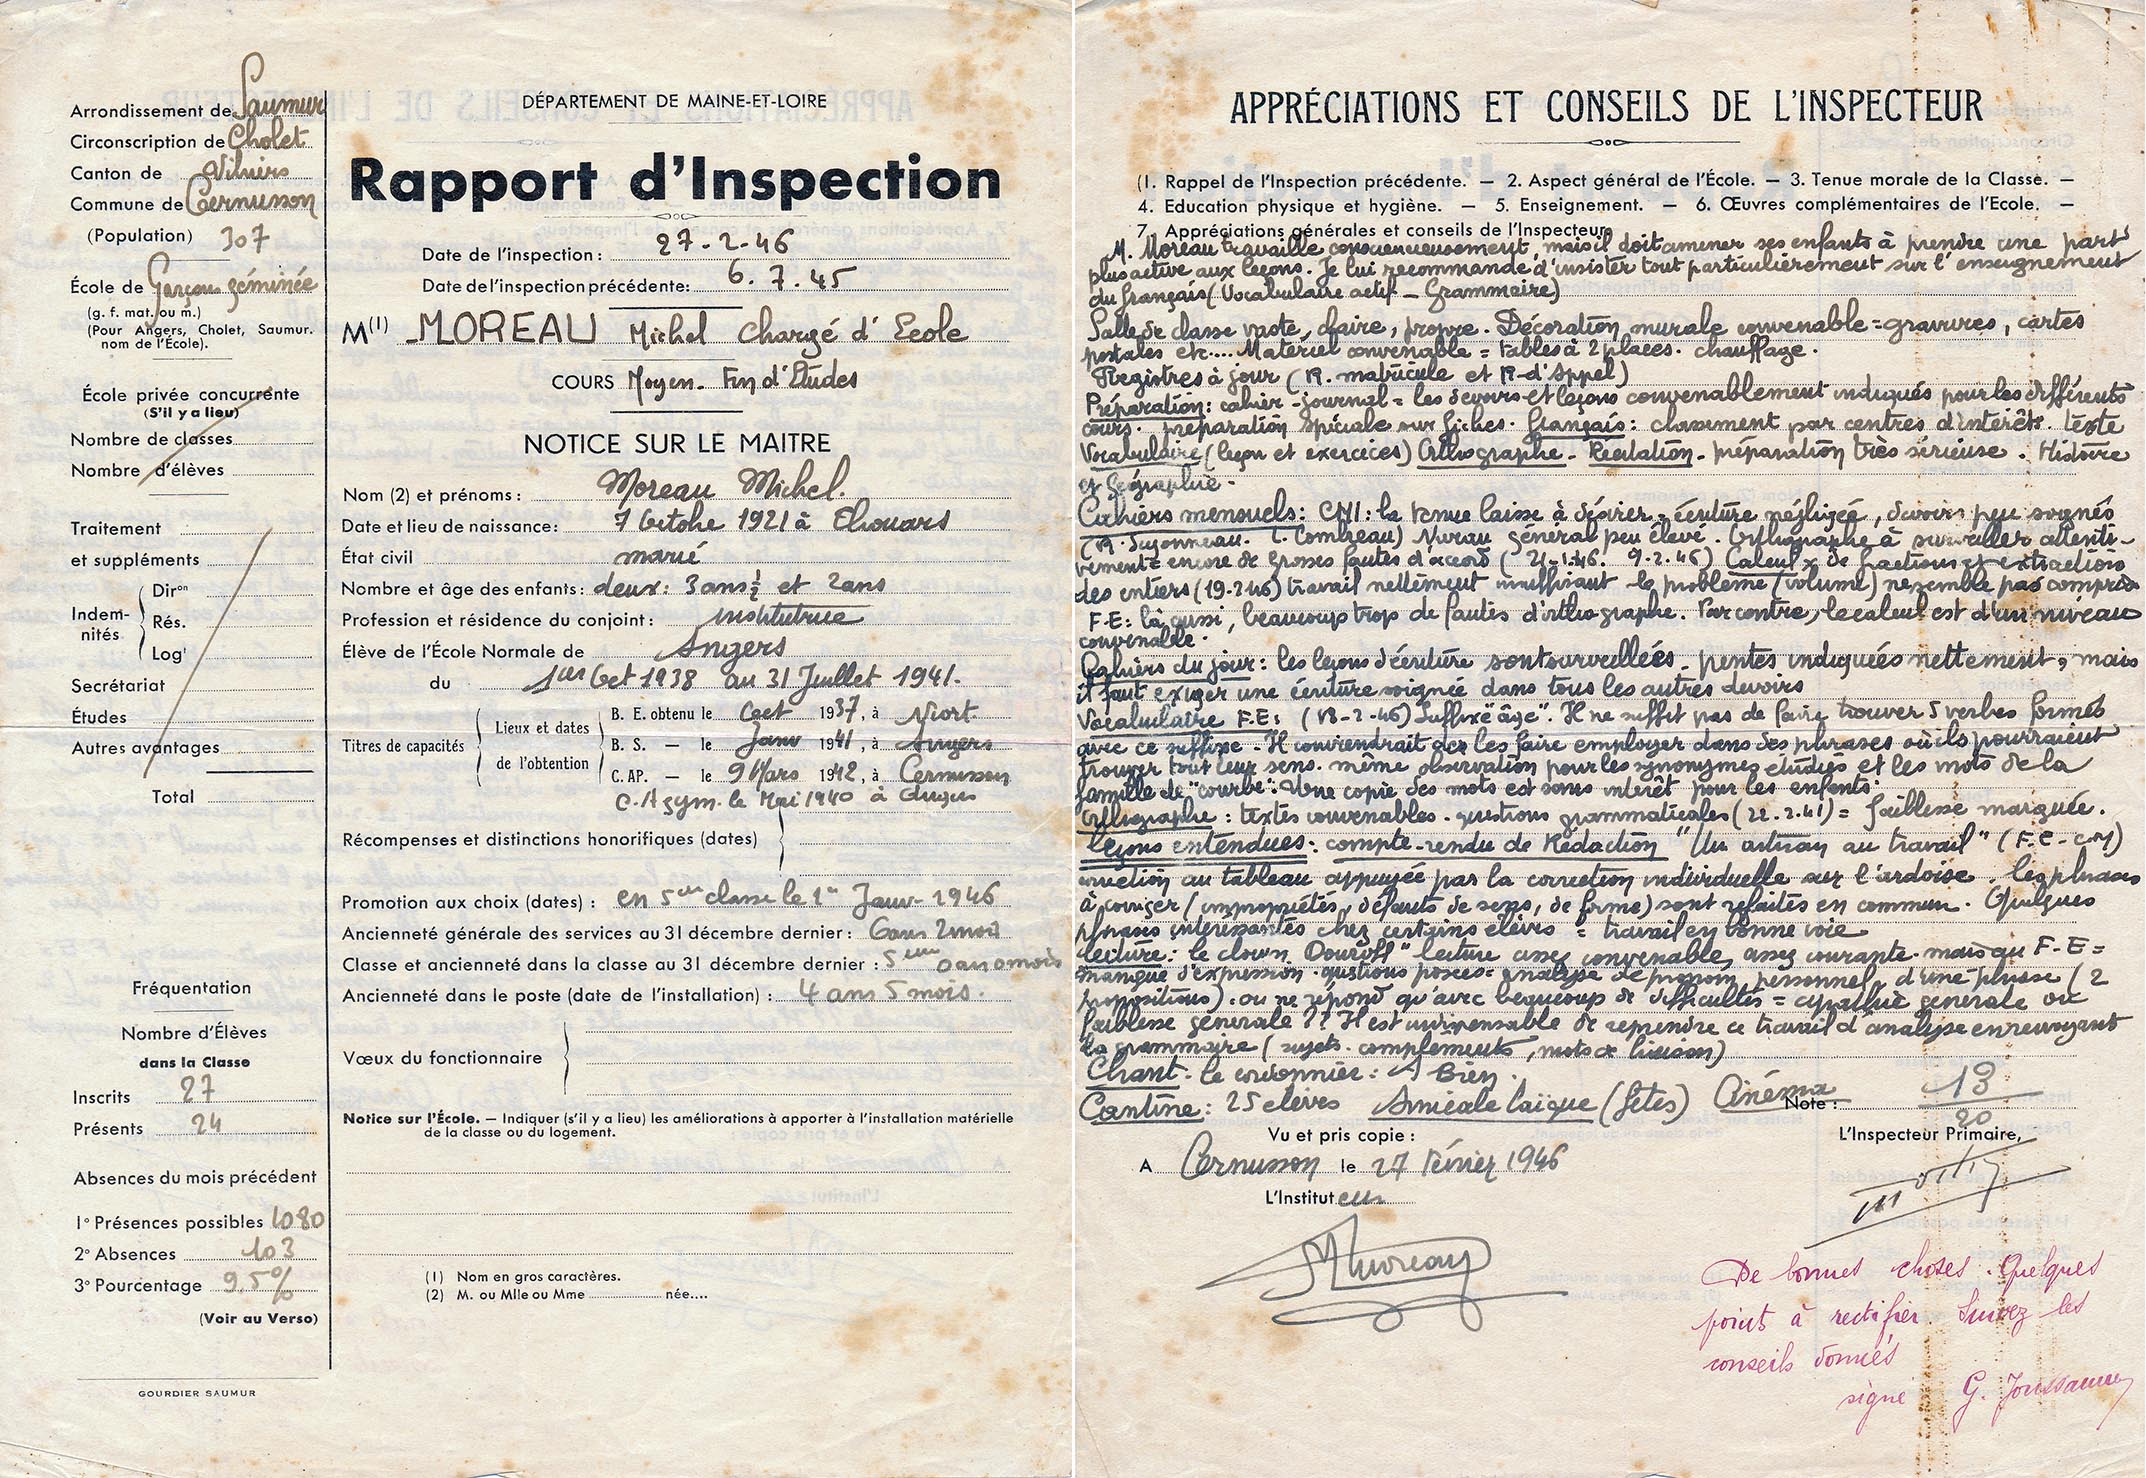 Arrondissement de Saumur
Circonscription de Cholet
Canton de Vihiers
Commune de Cernusson
(Population) 307
École de Garçons géminée
(g. f. mat. ou m.)
(Pour Angers, Cholet, Saumur.
nom de l'École).
École privée concurrente
(S'il y a lieu)
Nombre de classes
Nombre d'élèves
Traitement
et suppléments
Indem-
nités
Dirᵒⁿ
Rés.
Logᵗ
Secrétariat
Études
Autres avantages
Total
Fréquentation
Nombre d'Élèves
dans la Classe
Inscrits 27
Présents 24
Absences du mois précédent
1° Présences possibles 1080
2° Absences 103
3° Pourcentage 9,5%
(Voir au Verso)
GOURDIER SAUMUR
DÉPARTEMENT DE MAINE-ET-LOIRE
Rapport d'Inspection
Date de l'inspection : 27-2-46
Date de l'inspection précédente : 6.7.45
M(1) MOREAU Michel Chargé d'Ecole
COURS Moyen - Fin d'Études
NOTICE SUR LE MAITRE
Nom (2) et prénoms : Moreau Michel.
Date et lieu de naissance : 7 Octobre 1921 à Thouars
État civil marié
Nombre et âge des enfants : deux : 3 ans ½ et 2 ans
Profession et résidence du conjoint : institutrice
Élève de l'École Normale de Angers
du 1er Oct 1938 au 31 Juillet 1941.
Titres de capacités
Lieux et dates
de l'obtention
B. E. obtenu le 1937, à Niort
B. S. — le Janv 1941, à Angers
C. AP. — le 9 Mars 1942, à Cernusson
C.A gym. le Mai 1940 à Angers
Récompenses et distinctions honorifiques (dates)
Promotion aux choix (dates) : en 5ème classe le 1er Janv- 1946
Ancienneté générale des services au 31 décembre dernier : 6 ans 2 mois
Classe et ancienneté dans la classe au 31 décembre dernier : 5ème 0 an 0 mois
Ancienneté dans le poste (date de l'installation) : 4 ans 5 mois.
Vœux du fonctionnaire
Notice sur l'École. — Indiquer (s'il y a lieu) les améliorations à apporter à l'installation matérielle
de la classe ou du logement.
(1) Nom en gros caractères.
(2) M. ou Mlle ou Mme née....
APPRÉCIATIONS ET CONSEILS DE L'INSPECTEUR
(1. Rappel de l'Inspection précédente. — 2. Aspect général de l'École. — 3. Tenue morale de la Classe. —
4. Education physique et hygiène. — 5. Enseignement. — 6. Œuvres complémentaires de l'Ecole. —
7. Appréciations générales et conseils de l'Inspecteur
M. Moreau travaille consciencieusement, mais il doit amener ses enfants à prendre une part
plus active aux leçons. Je lui recommande d'insister tout particulièrement sur l'enseignement
du français (Vocabulaire actif - Grammaire)
Salle de classe vaste, claire, propre. Décoration murale convenable = gravures, cartes
postales etc.... Matériel convenable = tables à 2 places. chauffage.
Registres à jour (R. matricule et R-d'Appel)
Préparation : cahier-journal = les devoirs et leçons convenablement indiqués pour les différents
cours. préparation spéciale sur fiches. français : classement par centres d'intérêt. texte
Vocabulaire (leçon et exercices) Orthographe - Récitation - préparation très sérieuse. Histoire
et géographie.
Cahiers mensuels : CM1 : la tenue laisse à désirer - écriture négligée, devoirs peu soignés
Niveau général peu élevé. Orthographe à surveiller attenti-
vement = encore de grosses fautes d'accord (21-1-46. 9-2-46) Calcul de fractions et extractions
des entiers (19-2-46) travail nettement insuffisant - le problème (volume) ne semble pas compris
F-E : là aussi, beaucoup trop de fautes d'orthographe. Par contre, le calcul est d'un niveau
convenable.
Cahiers du jour : les leçons d'écriture sont surveillées - pentes indiquées nettement, mais
il faut exiger une écriture soignée dans tous les autres devoirs
Vocabulaire F.E : (18-2-46) Suffixe "âge". Il ne suffit pas de faire trouver 5 verbes formés
avec ce suffixe. Il conviendrait de les faire employer dans des phrases où ils pourraient
trouver tout leur sens. même observation pour les synonymes étudiés et les mots de la
famille de "courbe". Une copie des mots est sans intérêt pour les enfants.
Orthographe : textes convenables - questions grammaticales (22-2-41) = faiblesse marquée.
Leçons entendues : compte-rendu de Rédaction "Un artisan au travail" (F.E - C.M)
correction au tableau appuyée par la correction individuelle sur l'ardoise. les phrases
à corriger (impropriétés, défauts de sens, de forme) sont refaites en commun. Quelques
phrases intéressantes chez certains élèves = travail en bonne voie
Lecture : le clown Douroff" lecture assez convenable, assez courante - mais qu F-E =
manque d'expression. questions posées = analyse de pronom personnel, d'une phrase (2
propositions) . on ne répond qu'avec beaucoup de difficultés = apathie générale ou
faiblesse générale ?? Il est indispensable de reprendre ce travail d'analyse en revoyant
la grammaire (sujets - compléments, mots de liaison)
Chant - le cordonnier : A Bien.
Cantine : 25 élèves Amicale laïque (fêtes) Cinéma
Note : 13/20
Vu et pris copie :
A Cernusson le 27 Février 1946
L'Instituteur
L'Inspecteur Primaire,
De bonnes choses. Quelques
points à rectifier. Suivez les
conseils donnés
signé G.